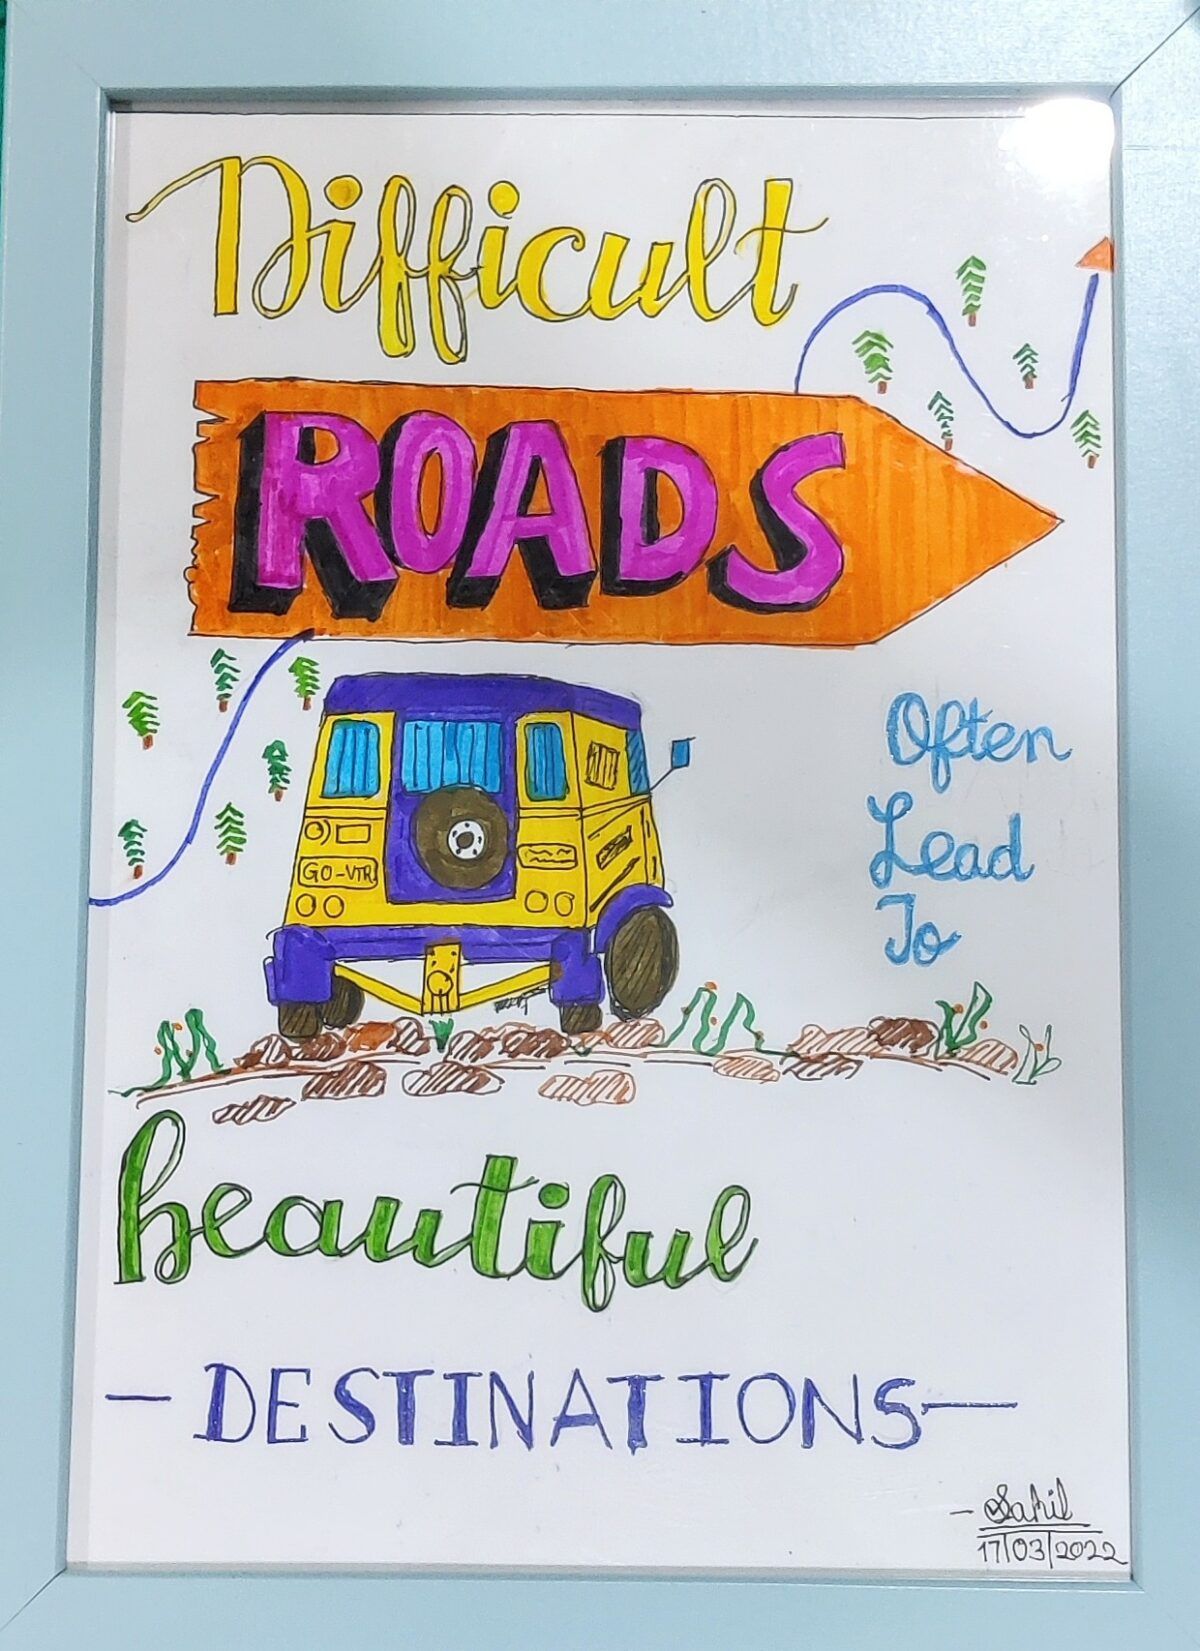 Difficult
ROADS
Often
Lead
To
GO-VTR
beautiful
- DESTINATIONS -
- Sahil
17/03/2022